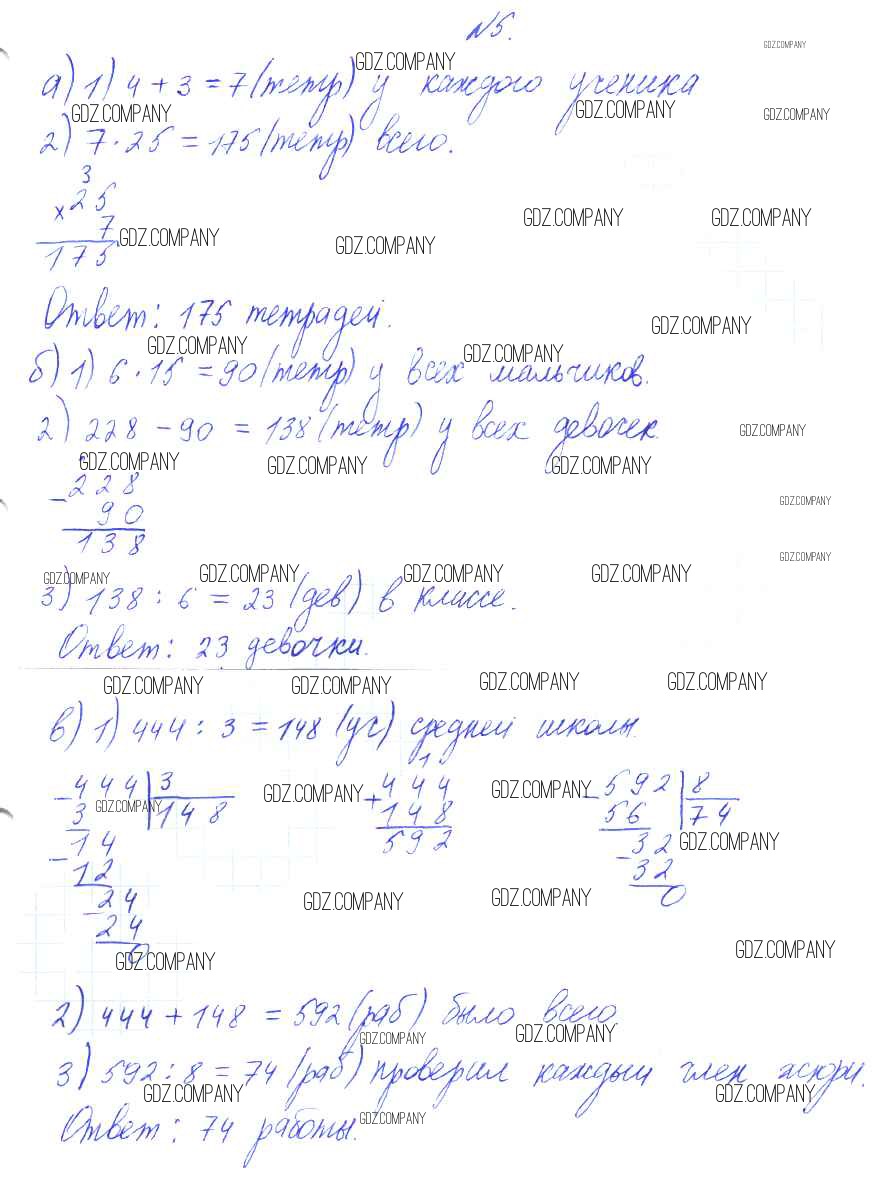 №5.
GDZ.COMPANY
GDZ.COMPANY
а) 1) 4 + 3 = 7 (тетр) у каждого ученика
GDZ.COMPANY GDZ.COMPANY GDZ.COMPANY
2) 7 · 25 = 175 (тетр) всего.
3
× 25
7
GDZ.COMPANY GDZ.COMPANY
GDZ.COMPANY GDZ.COMPANY
175
Ответ: 175 тетрадей.
GDZ.COMPANY
GDZ.COMPANY GDZ.COMPANY
б) 1) 6 · 15 = 90 (тетр) у всех мальчиков.
2) 228 - 90 = 138 (тетр) у всех девочек.
GDZ.COMPANY
GDZ.COMPANY GDZ.COMPANY GDZ.COMPANY
- 228
GDZ.COMPANY
90
138
GDZ.COMPANY
GDZ.COMPANY GDZ.COMPANY GDZ.COMPANY GDZ.COMPANY
3) 138 : 6 = 23 (дев) в классе.
Ответ: 23 девочки.
GDZ.COMPANY GDZ.COMPANY GDZ.COMPANY GDZ.COMPANY
в) 1) 444 : 3 = 148 (уч) средней школы.
1
- 444 3 + 444 - 592 8
GDZ.COMPANY GDZ.COMPANY GDZ.COMPANY
3 148 148 56 74
- 14 592 - 32
GDZ.COMPANY
12 32
- 24 0
GDZ.COMPANY GDZ.COMPANY
24
0
GDZ.COMPANY GDZ.COMPANY
2) 444 + 148 = 592 (раб) было всего.
GDZ.COMPANY GDZ.COMPANY
3) 592 : 8 = 74 (раб) проверил каждый член жюри.
GDZ.COMPANY GDZ.COMPANY
Ответ: 74 работы.
GDZ.COMPANY